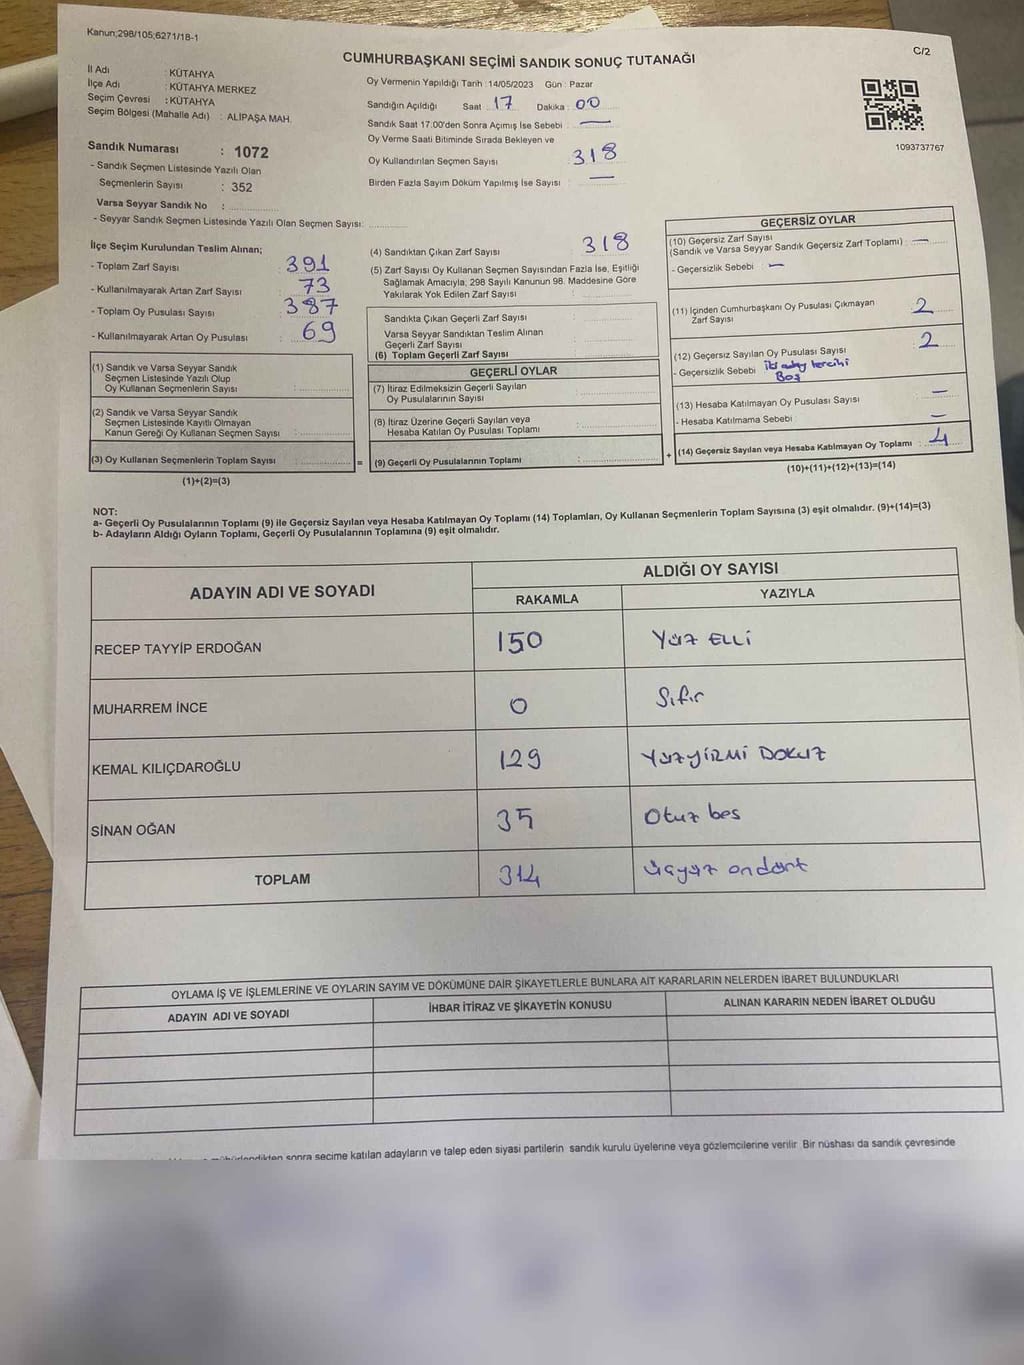 Kanun;298/105;6271/18-1
C/2
CUMHURBAŞKANI SEÇİMİ SANDIK SONUÇ TUTANAĞI
İl Adı : KÜTAHYA
İlçe Adı : KÜTAHYA MERKEZ
Seçim Çevresi : KÜTAHYA
Seçim Bölgesi (Mahalle Adı) : ALİPAŞA MAH.
Sandık Numarası : 1072
- Sandık Seçmen Listesinde Yazılı Olan
Seçmenlerin Sayısı : 352
Varsa Seyyar Sandık No :
- Seyyar Sandık Seçmen Listesinde Yazılı Olan Seçmen Sayısı:
Oy Vermenin Yapıldığı Tarih :14/05/2023 Gün : Pazar
Sandığın Açıldığı Saat : 17 Dakika : 00
Sandık Saat 17:00'den Sonra Açımış İse Sebebi : —
Oy Verme Saati Bitiminde Sırada Bekleyen ve
Oy Kullandırılan Seçmen Sayısı : 318
Birden Fazla Sayım Döküm Yapılmış İse Sayısı : —
1093737767
İlçe Seçim Kurulundan Teslim Alınan;
- Toplam Zarf Sayısı : 391
- Kullanılmayarak Artan Zarf Sayısı : 73
- Toplam Oy Pusulası Sayısı : 387
- Kullanılmayarak Artan Oy Pusulası : 69
(1) Sandık ve Varsa Seyyar Sandık
Seçmen Listesinde Yazılı Olup
Oy Kullanan Seçmenlerin Sayısı :
(2) Sandık ve Varsa Seyyar Sandık
Seçmen Listesinde Kayıtlı Olmayan
Kanun Gereği Oy Kullanan Seçmen Sayısı :
(3) Oy Kullanan Seçmenlerin Toplam Sayısı :
(1)+(2)=(3)
(4) Sandıktan Çıkan Zarf Sayısı : 318
(5) Zarf Sayısı Oy Kullanan Seçmen Sayısından Fazla İse, Eşitliği
Sağlamak Amacıyla, 298 Sayılı Kanunun 98. Maddesine Göre
Yakılarak Yok Edilen Zarf Sayısı :
Sandıkta Çıkan Geçerli Zarf Sayısı :
Varsa Seyyar Sandıktan Teslim Alınan
Geçerli Zarf Sayısı :
(6) Toplam Geçerli Zarf Sayısı :
GEÇERLİ OYLAR
(7) İtiraz Edilmeksizin Geçerli Sayılan
Oy Pusulalarının Sayısı :
(8) İtiraz Üzerine Geçerli Sayılan veya
Hesaba Katılan Oy Pusulası Toplamı :
= (9) Geçerli Oy Pusulalarının Toplamı :
GEÇERSİZ OYLAR
(10) Geçersiz Zarf Sayısı
(Sandık ve Varsa Seyyar Sandık Geçersiz Zarf Toplamı) : —
- Geçersizlik Sebebi : —
(11) İçinden Cumhurbaşkanı Oy Pusulası Çıkmayan
Zarf Sayısı : 2
(12) Geçersiz Sayılan Oy Pusulası Sayısı : 2
- Geçersizlik Sebebi : iki aday tercihi
Boş
(13) Hesaba Katılmayan Oy Pusulası Sayısı : —
- Hesaba Katılmama Sebebi : —
+ (14) Geçersiz Sayılan veya Hesaba Katılmayan Oy Toplamı : 4
(10)+(11)+(12)+(13)=(14)
NOT:
a- Geçerli Oy Pusulalarının Toplamı (9) ile Geçersiz Sayılan veya Hesaba Katılmayan Oy Toplamı (14) Toplamları, Oy Kullanan Seçmenlerin Toplam Sayısına (3) eşit olmalıdır. (9)+(14)=(3)
b- Adayların Aldığı Oyların Toplamı, Geçerli Oy Pusulalarının Toplamına (9) eşit olmalıdır.
ADAYIN ADI VE SOYADI ALDIĞI OY SAYISI
RAKAMLA YAZIYLA
RECEP TAYYİP ERDOĞAN 150 Yüz ELLİ
MUHARREM İNCE 0 Sıfır
KEMAL KILIÇDAROĞLU 129 YÜZYİRMİ DOKUZ
SİNAN OĞAN 35 Otuz beş
TOPLAM 314 üçyüz ondört
OYLAMA İŞ VE İŞLEMLERİNE VE OYLARIN SAYIM VE DÖKÜMÜNE DAİR ŞİKAYETLERLE BUNLARA AİT KARARLARIN NELERDEN İBARET BULUNDUKLARI
ADAYIN ADI VE SOYADI İHBAR İTİRAZ VE ŞİKAYETİN KONUSU ALINAN KARARIN NEDEN İBARET OLDUĞU
sonra seçime katılan adayların ve talep eden siyasi partilerin sandık kurulu üyelerine veya gözlemcilerine verilir. Bir nüshası da sandık çevresinde